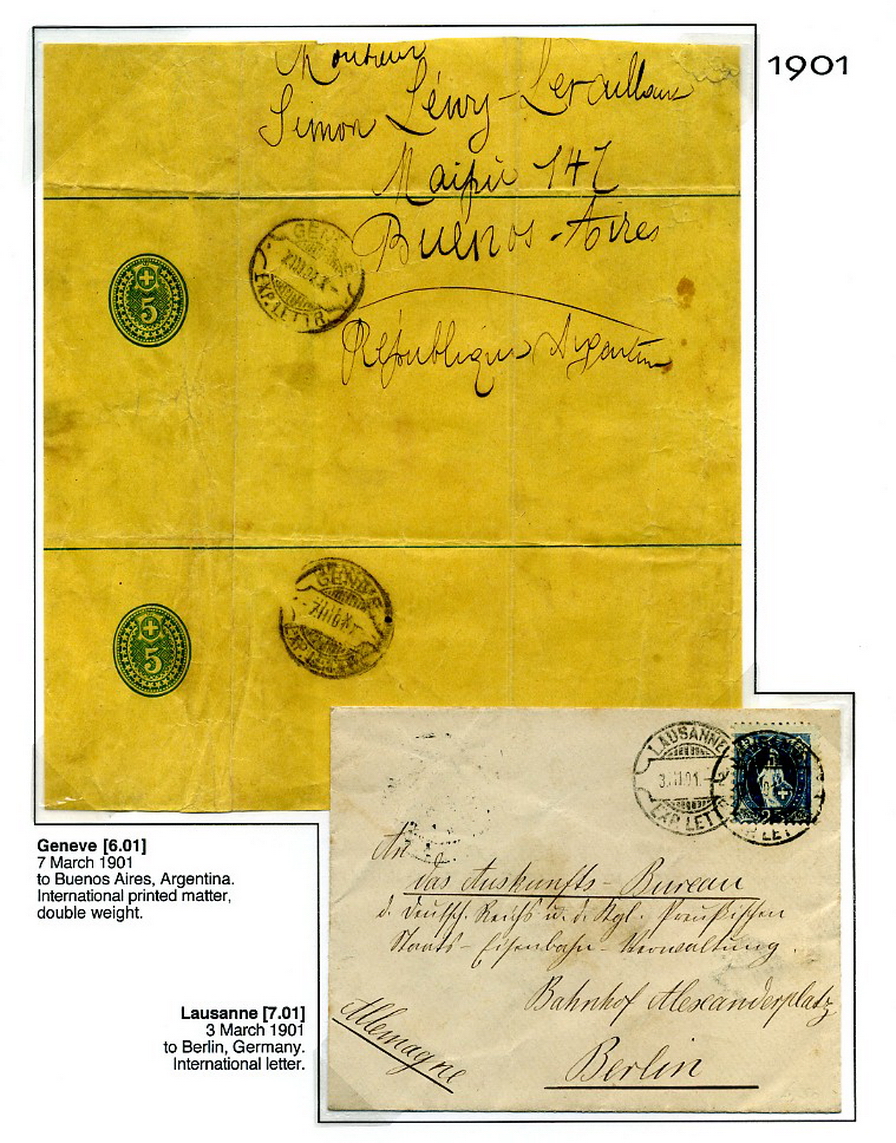 1901
Monsieur
Simon Lévy-Levaillant
Maipú 147
Buenos-Aires
République Argentine
5
GENÈVE
EXP. LETTR.
5
GENÈVE
EXP. LETTR.
LAUSANNE
3. III 01.
EXP. LETTR
25
An
das Auskunfts-Bureau
d. Deutsch. Reichs u. d. Kgl. Preußischen
Staats-Eisenbahn-Verwaltung.
Bahnhof Alexanderplatz
Berlin
Allemagne
Geneve [6.01]
7 March 1901
to Buenos Aires, Argentina.
International printed matter,
double weight.
Lausanne [7.01]
3 March 1901
to Berlin, Germany.
International letter.